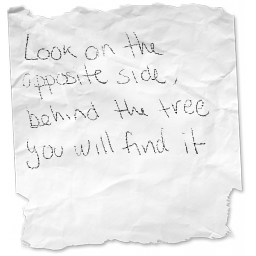 Look on the
opposite side,
behind the tree
you will find it